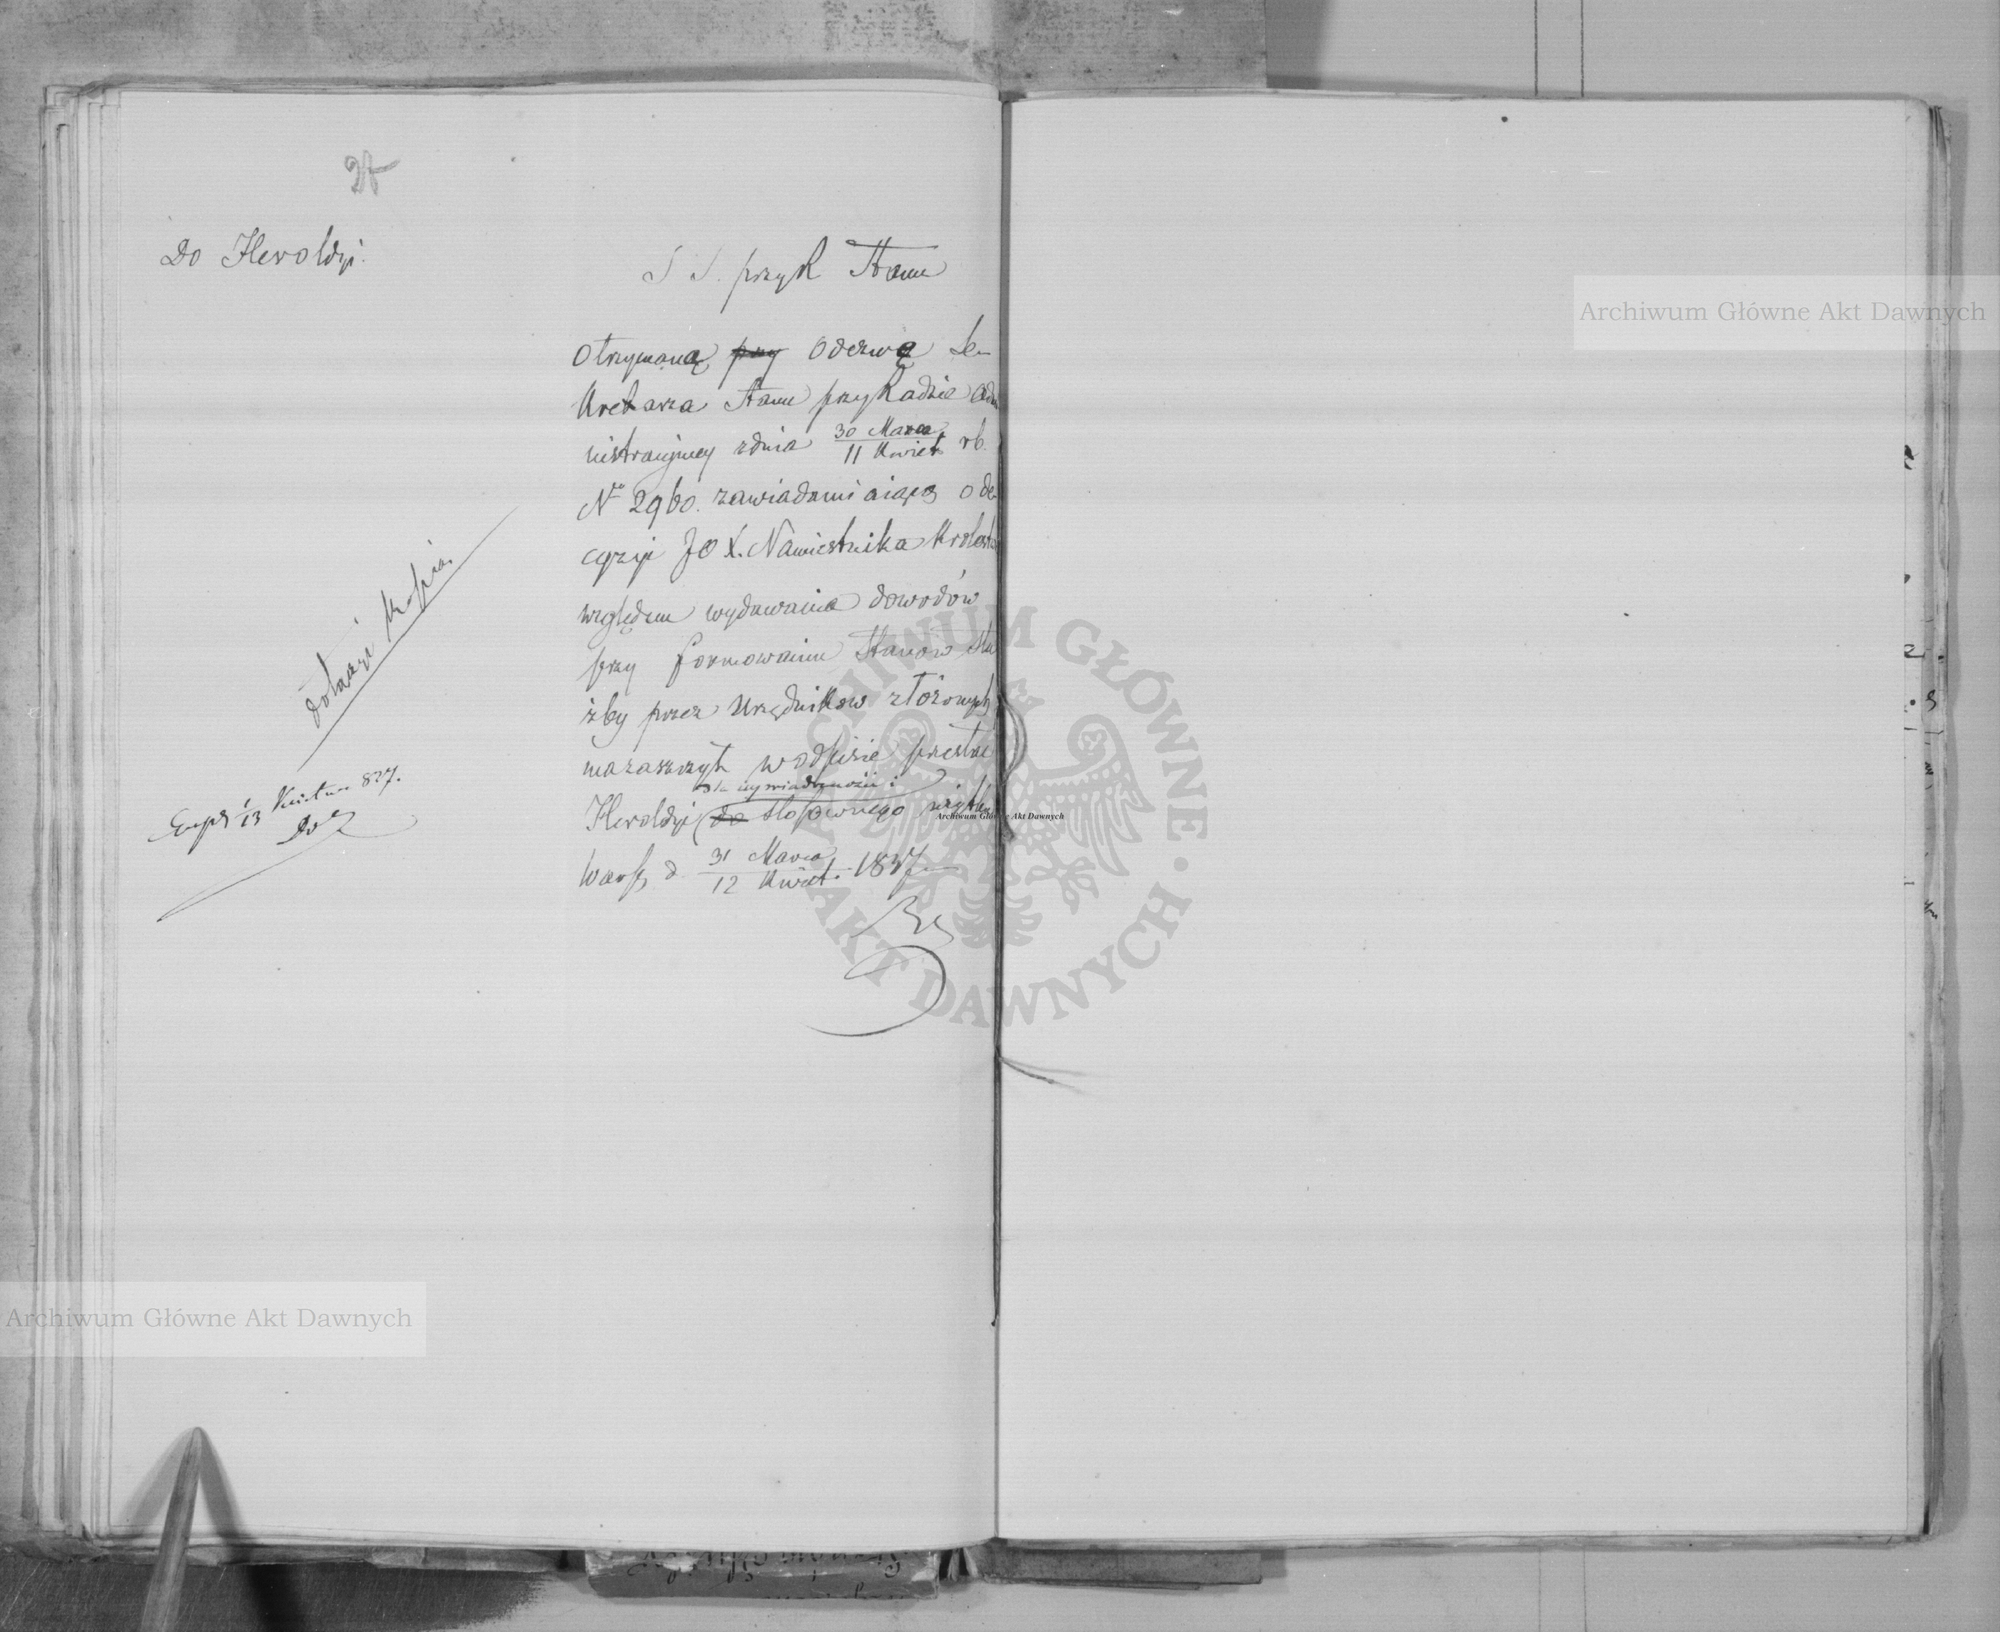 Do Heroldyi.
S S. przy R Stanu
otrzymaną przy Odezwę Se-
kretarza Stanu przy Radzie Adm
nistracyjney z dnia 30 Marca / 11 Kwiet. rb.
No 2960. zawiadamiaiącą o de-
cyzyi JO X. Namiestnika Królestwa
względem wydawania dowodów
przy formowaniu Stanów słu
żby przez Urzędników złożonych
ma zaszczyt w odpisie przesłać
dla iey wiadomości i
Heroldyi do stosownego użytku
Warsz. d. 31 Marca / 12 Kwiet. 1837
dołączyć kopią.
Exp. d 13 Kwietnia 837.
Archiwum Główne Akt Dawnych
Archiwum Główne Akt Dawnych
Archiwum Główne Akt Dawnych
ARCHIWUM GŁÓWNE AKT DAWNYCH